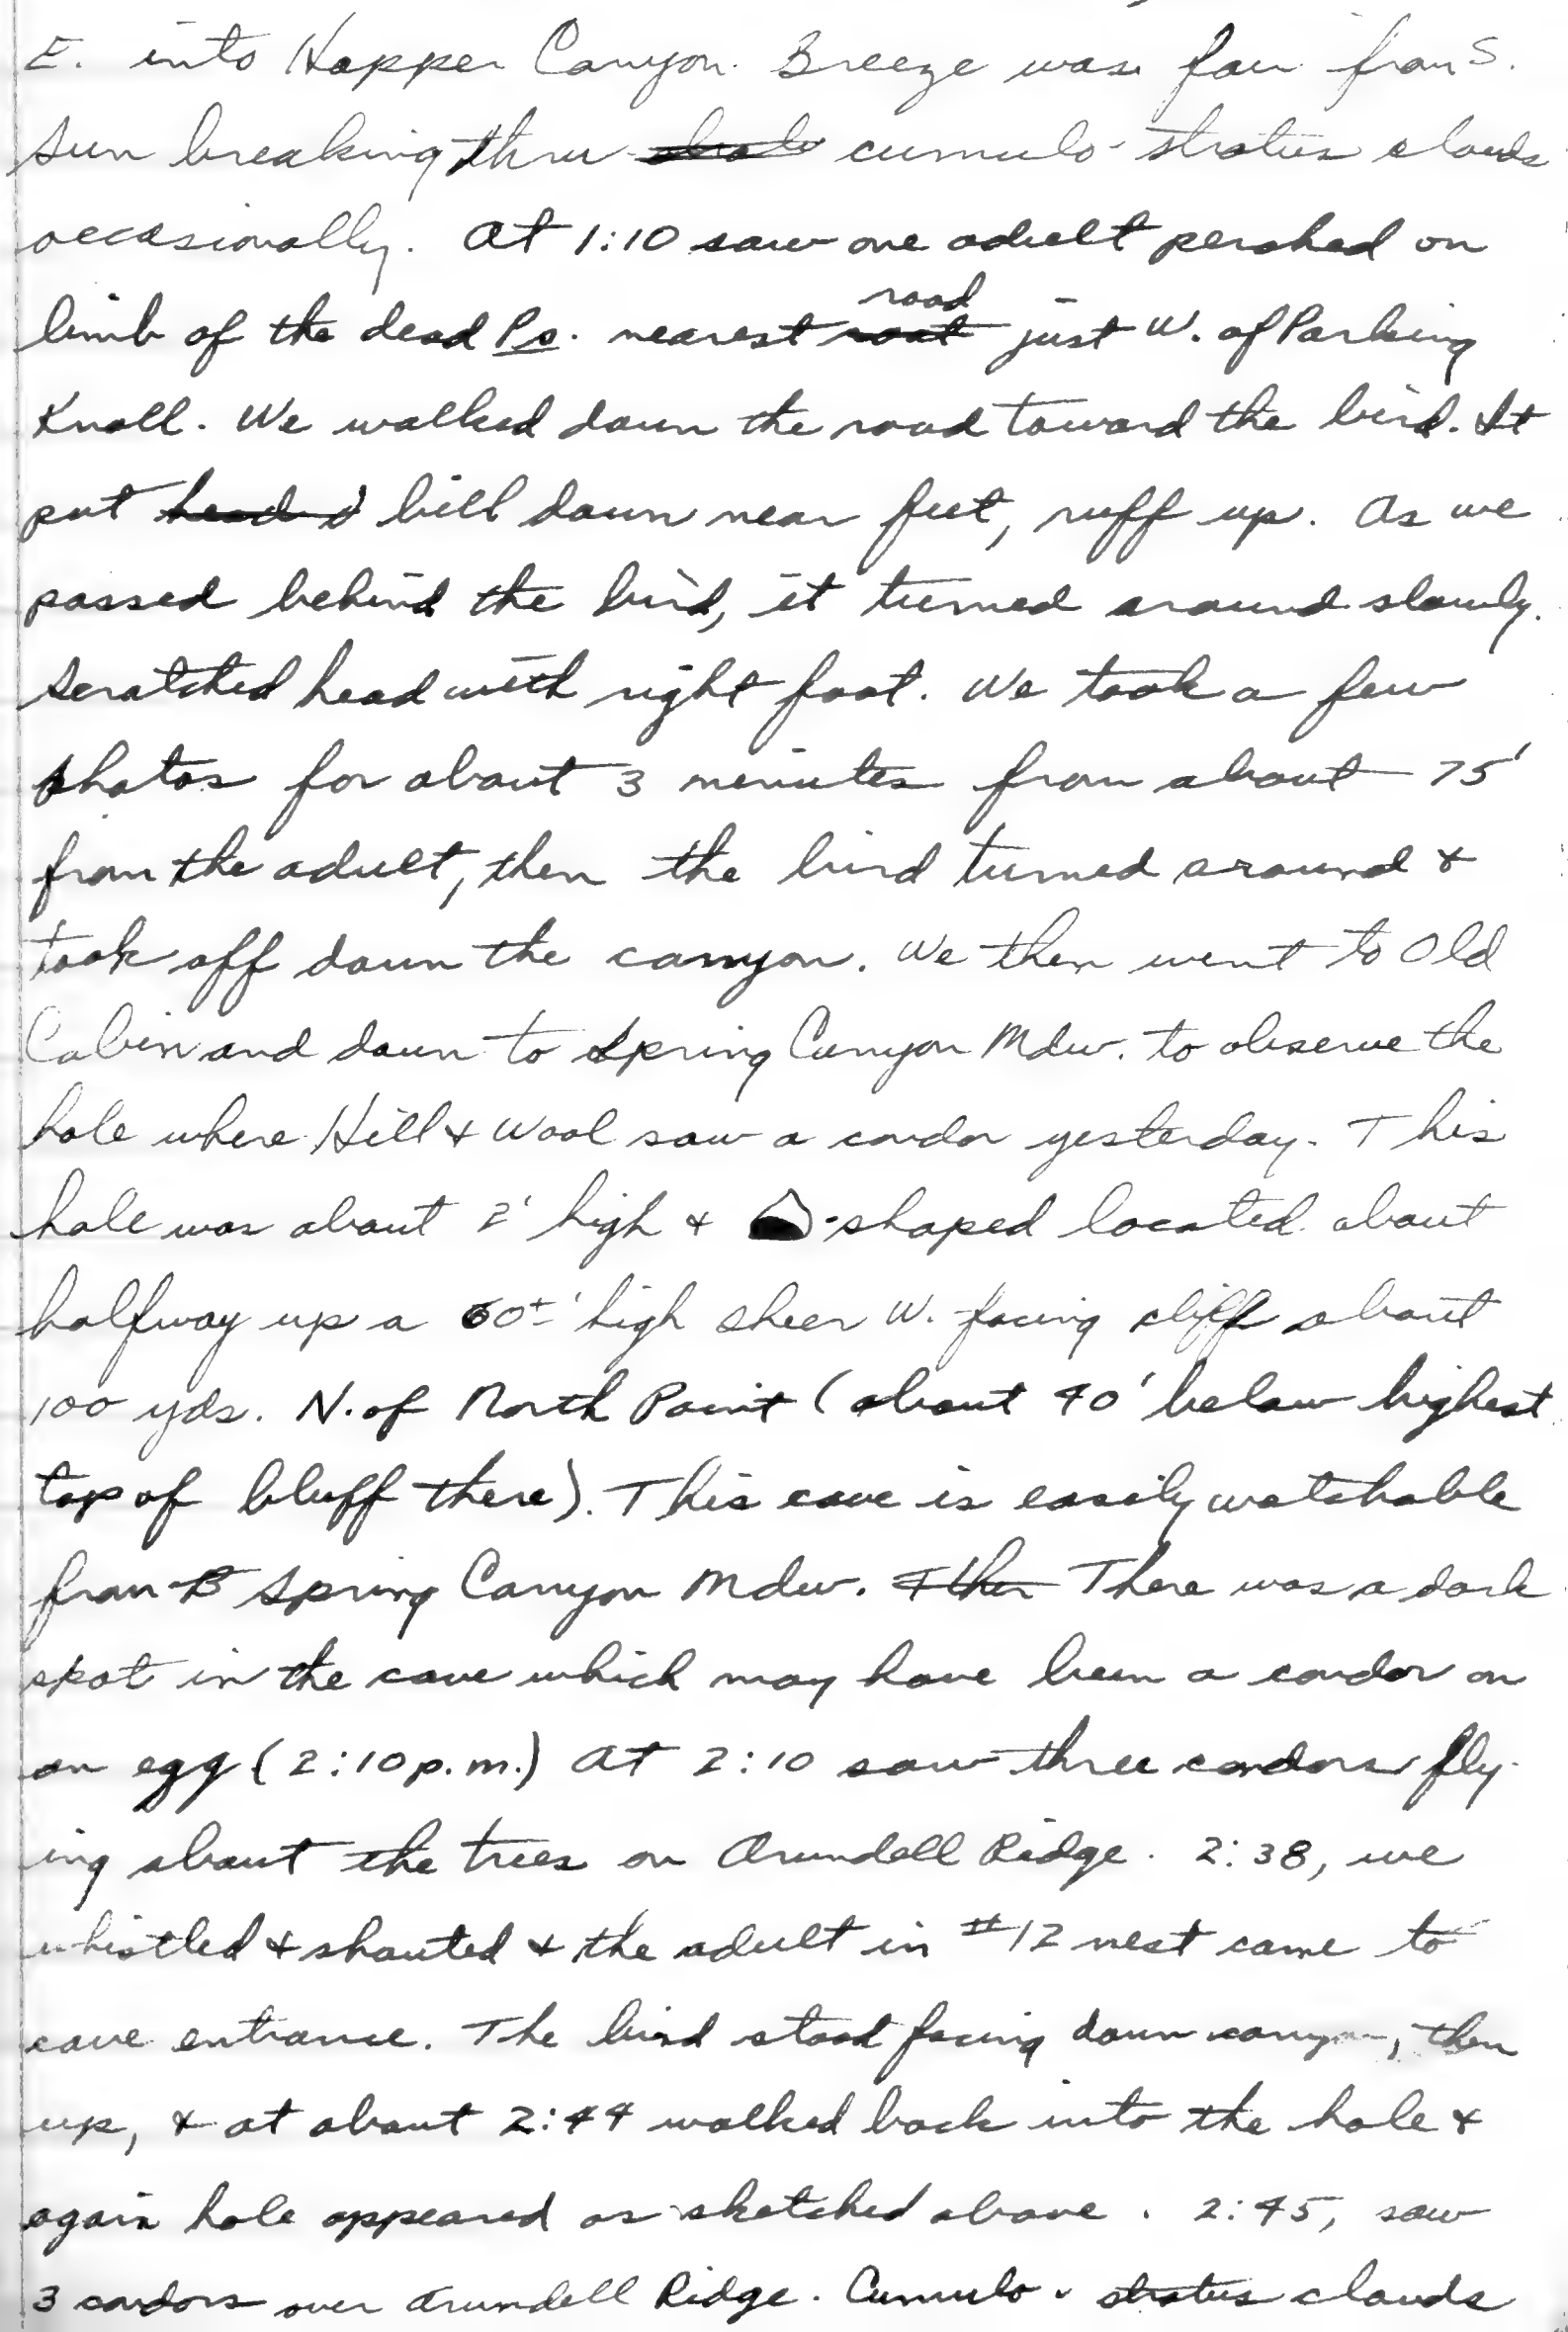 E. into Hopper Canyon. Breeze was fair from S.
Sun breaking thru cumulo-stratus clouds
occasionally. At 1:10 saw one adult perched on
limb of the dead Ps. nearest road just W. of Parking
Knoll. We walked down the road toward the bird. It
put head & bill down near feet, ruff up. As we
passed behind the bird, it turned around slowly.
Scratched head with right foot. We took a few
photos for about 3 minutes from about 75'
from the adult, then the bird turned around &
took off down the canyon. We then went to Old
Cabin and down to Spring Canyon Mdw. to observe the
hole where Hill & Wool saw a condor yesterday. This
hole was about 2' high & -shaped located about
halfway up a 60±' high sheer W.-facing cliff about
100 yds. N. of North Point (about 40' below highest
top of bluff there). This cave is easily watchable
from Spring Canyon Mdw. There was a dark
spot in the cave which may have been a condor on
an egg (2:10 p.m.) At 2:10 saw three condors fly-
ing about the trees on Arundell Ridge. 2:38, we
whistled & shouted & the adult in #12 nest came to
cave entrance. The bird stood facing down canyon, then
up, & at about 2:44 walked back into the hole &
again hole appeared as sketched above. 2:45, saw
3 condors over Arundell Ridge. Cumulo-stratus clouds